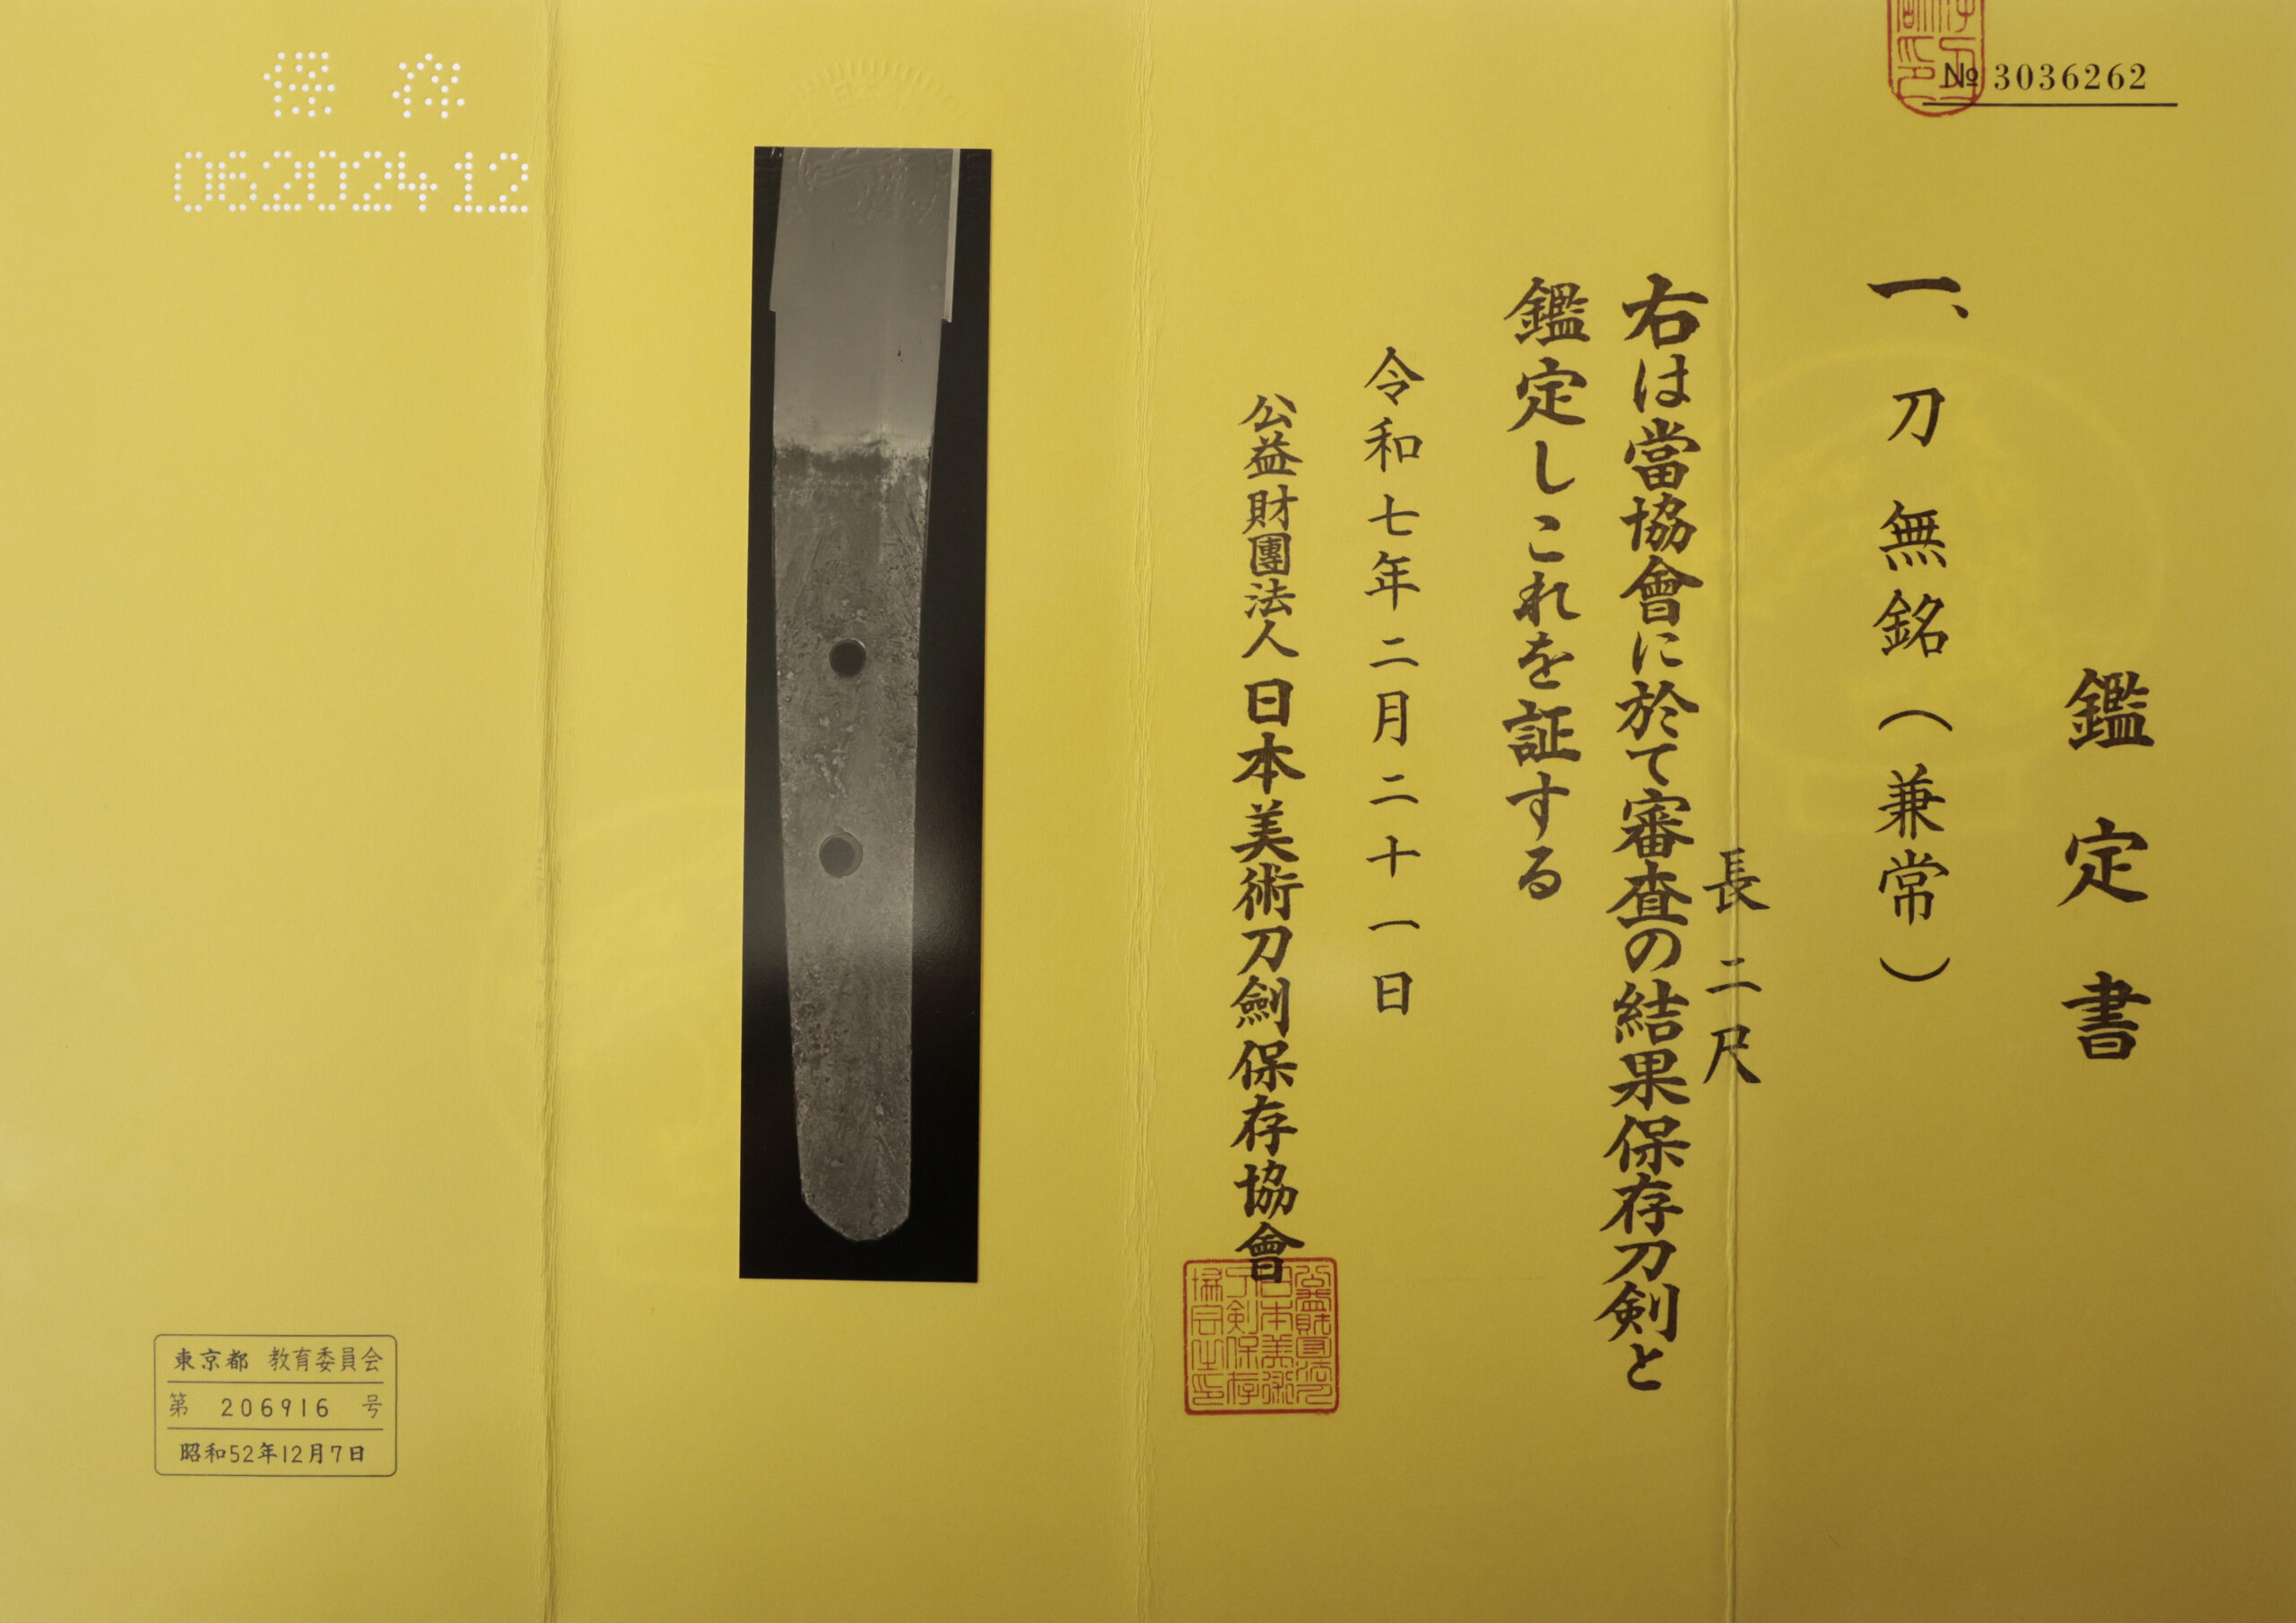 № 3036262
鑑定書
一、刀 無銘（兼常）
長 二尺
右は當協會に於て審査の結果保存刀剣と
鑑定しこれを証する
令和七年二月二十一日
公益財團法人 日本美術刀劍保存協會
保存
06202412
東京都 教育委員会
第 206916 号
昭和52年12月7日